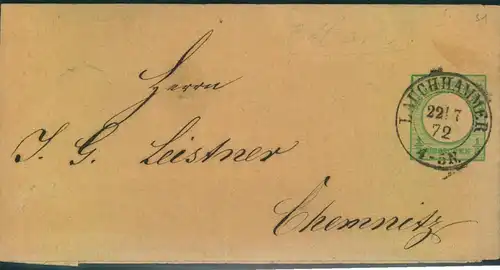 51
LAUCHHAMMER
22/7
72
4-5N.
Herrn
J. G. Leistner
Chemnitz